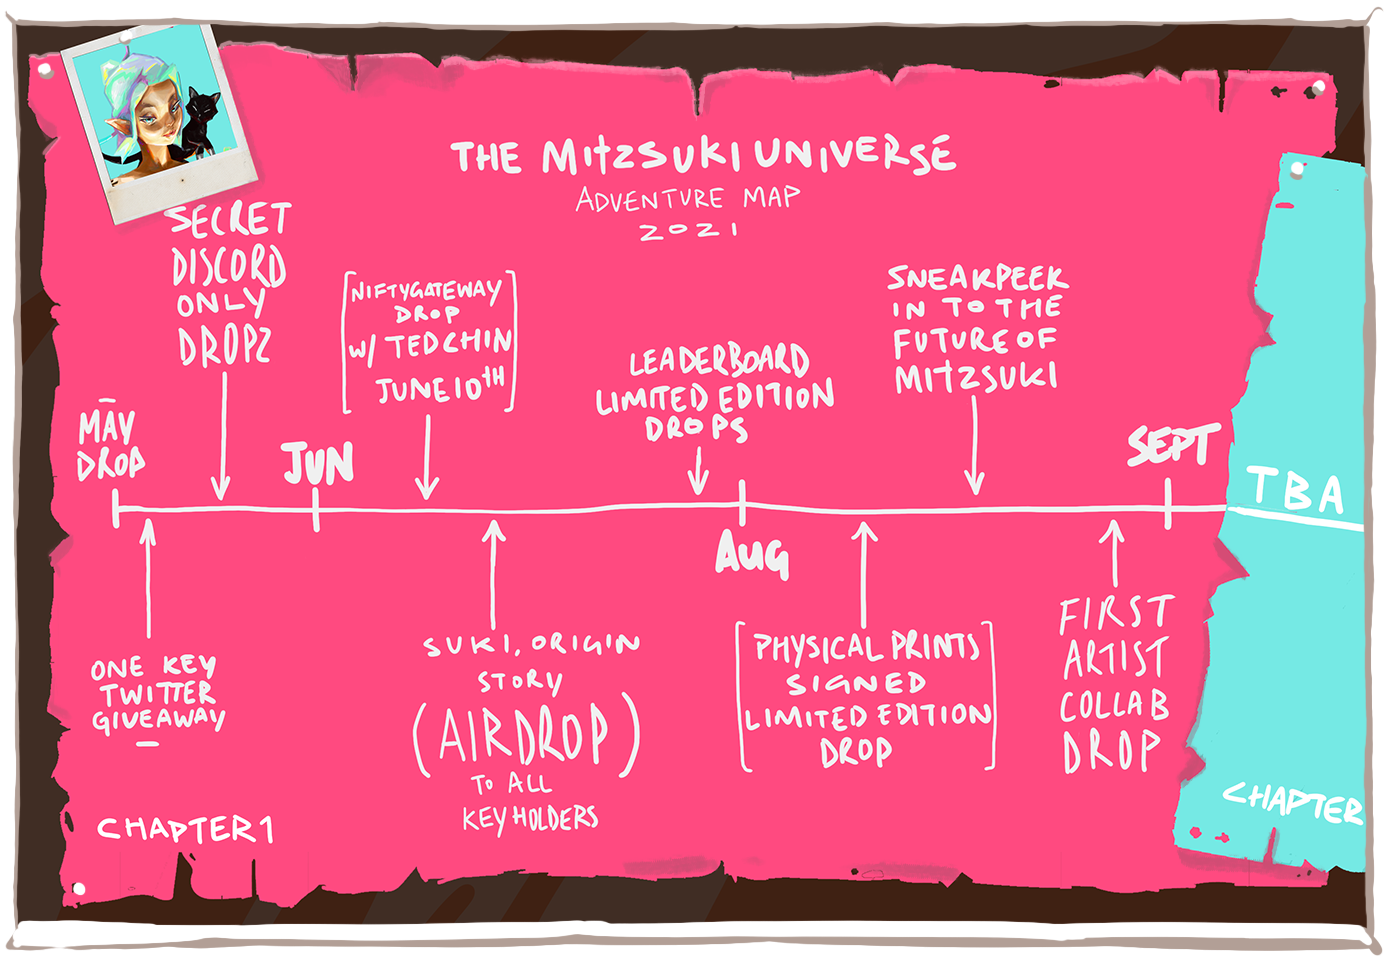 THE MITZSUKI UNIVERSE
ADVENTURE MAP
2021
SECRET
DISCORD
ONLY
DROPZ
[NIFTYGATEWAY
DROP
W/ TEDCHIN
JUNE 10TH]
LEADERBOARD
LIMITED EDITION
DROPS
SNEAKPEEK
IN TO THE
FUTURE OF
MITZSUKI
MAY
DROP
JUN
AUG
SEPT
TBA
ONE KEY
TWITTER
GIVEAWAY
SUKI, ORIGIN
STORY
(AIRDROP)
TO ALL
KEY HOLDERS
[PHYSICAL PRINTS
SIGNED
LIMITED EDITION
DROP]
FIRST
ARTIST
COLLAB
DROP
CHAPTER 1
CHAPTER